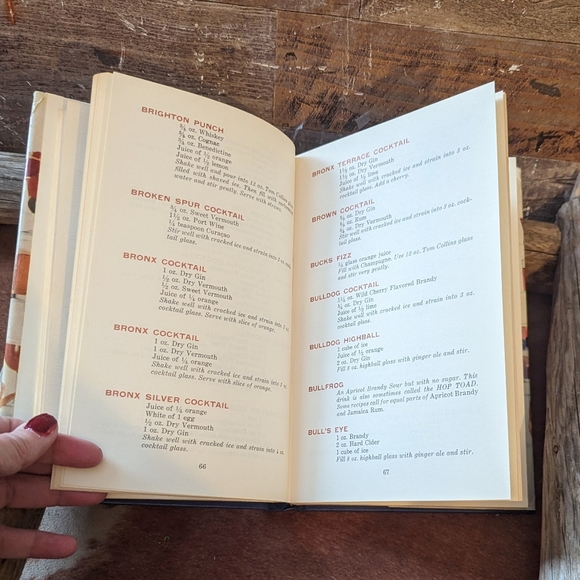 BRIGHTON PUNCH
¾ oz. Whiskey
¾ oz. Cognac
¾ oz. Benedictine
Juice of ½ orange
Juice of ½ lemon
Shake well and pour into 12 oz. Tom Collins glass
filled with shaved ice. Then fill with
water and stir gently. Serve with straws.
BROKEN SPUR COCKTAIL
¾ oz. Sweet Vermouth
1½ oz. Port Wine
¼ teaspoon Curaçao
Stir well with cracked ice and strain into 3 oz.
tail glass.
BRONX COCKTAIL
1 oz. Dry Gin
½ oz. Dry Vermouth
½ oz. Sweet Vermouth
Juice of ¼ orange
Shake well with cracked ice and strain into 3
cocktail glass. Serve with slice of orange.
BRONX COCKTAIL
1 oz. Dry Gin
1 oz. Dry Vermouth
Juice of ¼ orange
Shake well with cracked ice and strain into 3
cocktail glass. Serve with slice of orange.
BRONX SILVER COCKTAIL
Juice of ½ orange
White of 1 egg
½ oz. Dry Vermouth
1 oz. Dry Gin
Shake well with cracked ice and strain into
cocktail glass.
66
BRONX TERRACE COCKTAIL
1½ oz. Dry Gin
1½ oz. Dry Vermouth
Juice of ½ lime
Shake well with cracked ice and strain into 3 oz.
cocktail glass. Add a cherry.
BROWN COCKTAIL
¾ oz. Dry Gin
¾ oz. Rum
¾ oz. Dry Vermouth
Stir well with cracked ice and strain into 3 oz. cock-
tail glass.
BUCKS FIZZ
¼ glass orange juice
Fill with Champagne. Use 12 oz. Tom Collins glass
and stir very gently.
BULLDOG COCKTAIL
1½ oz. Wild Cherry Flavored Brandy
¾ oz. Dry Gin
Juice of ½ lime
Shake well with cracked ice and strain into 3 oz.
cocktail glass.
BULLDOG HIGHBALL
1 cube of ice
Juice of ½ orange
2 oz. Dry Gin
Fill 8 oz. highball glass with ginger ale and stir.
BULLFROG
An Apricot Brandy Sour but with no sugar. This
drink is also sometimes called the HOP TOAD.
Some recipes call for equal parts of Apricot Brandy
and Jamaica Rum.
BULL'S EYE
1 oz. Brandy
2 oz. Hard Cider
1 cube of ice
Fill 8 oz. highball glass with ginger ale and stir.
67